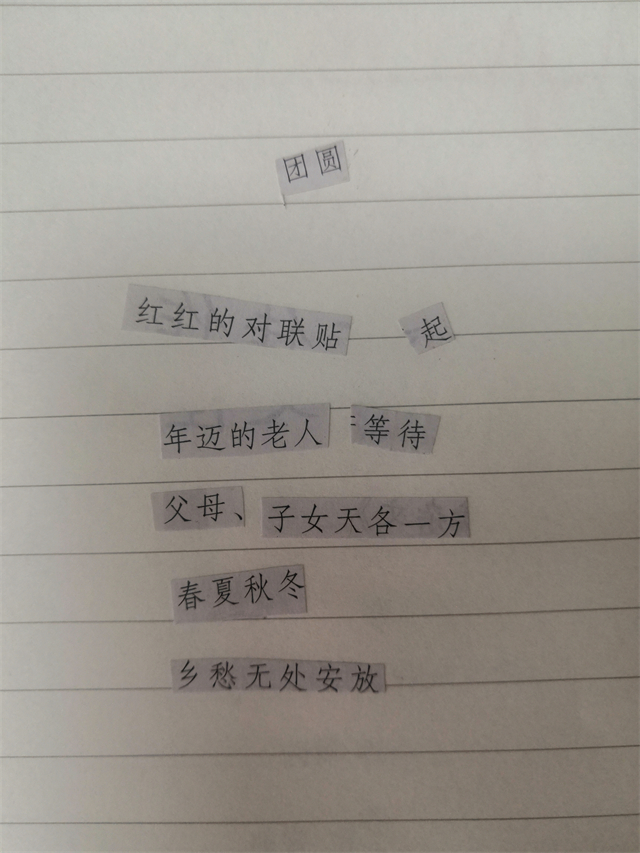 团圆
红红的对联贴 起
年迈的老人 等待
父母、子女天各一方
春夏秋冬
乡愁无处安放